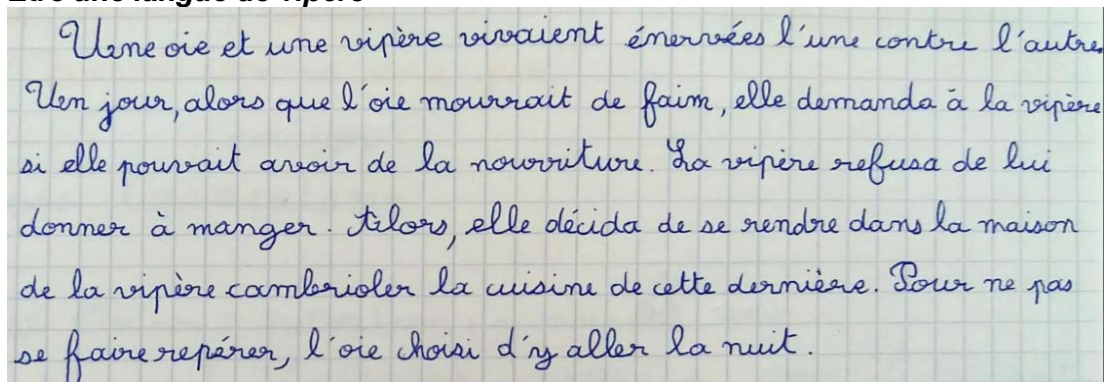 Être une langue de vipère
Une oie et une vipère vivaient énervées l'une contre l'autre.
Un jour, alors que l'oie mourrait de faim, elle demanda à la vipère
si elle pouvait avoir de la nourriture. La vipère refusa de lui
donner à manger. Alors, elle décida de se rendre dans la maison
de la vipère cambrioler la cuisine de cette dernière. Pour ne pas
se faire repérer, l'oie choisi d'y aller la nuit.